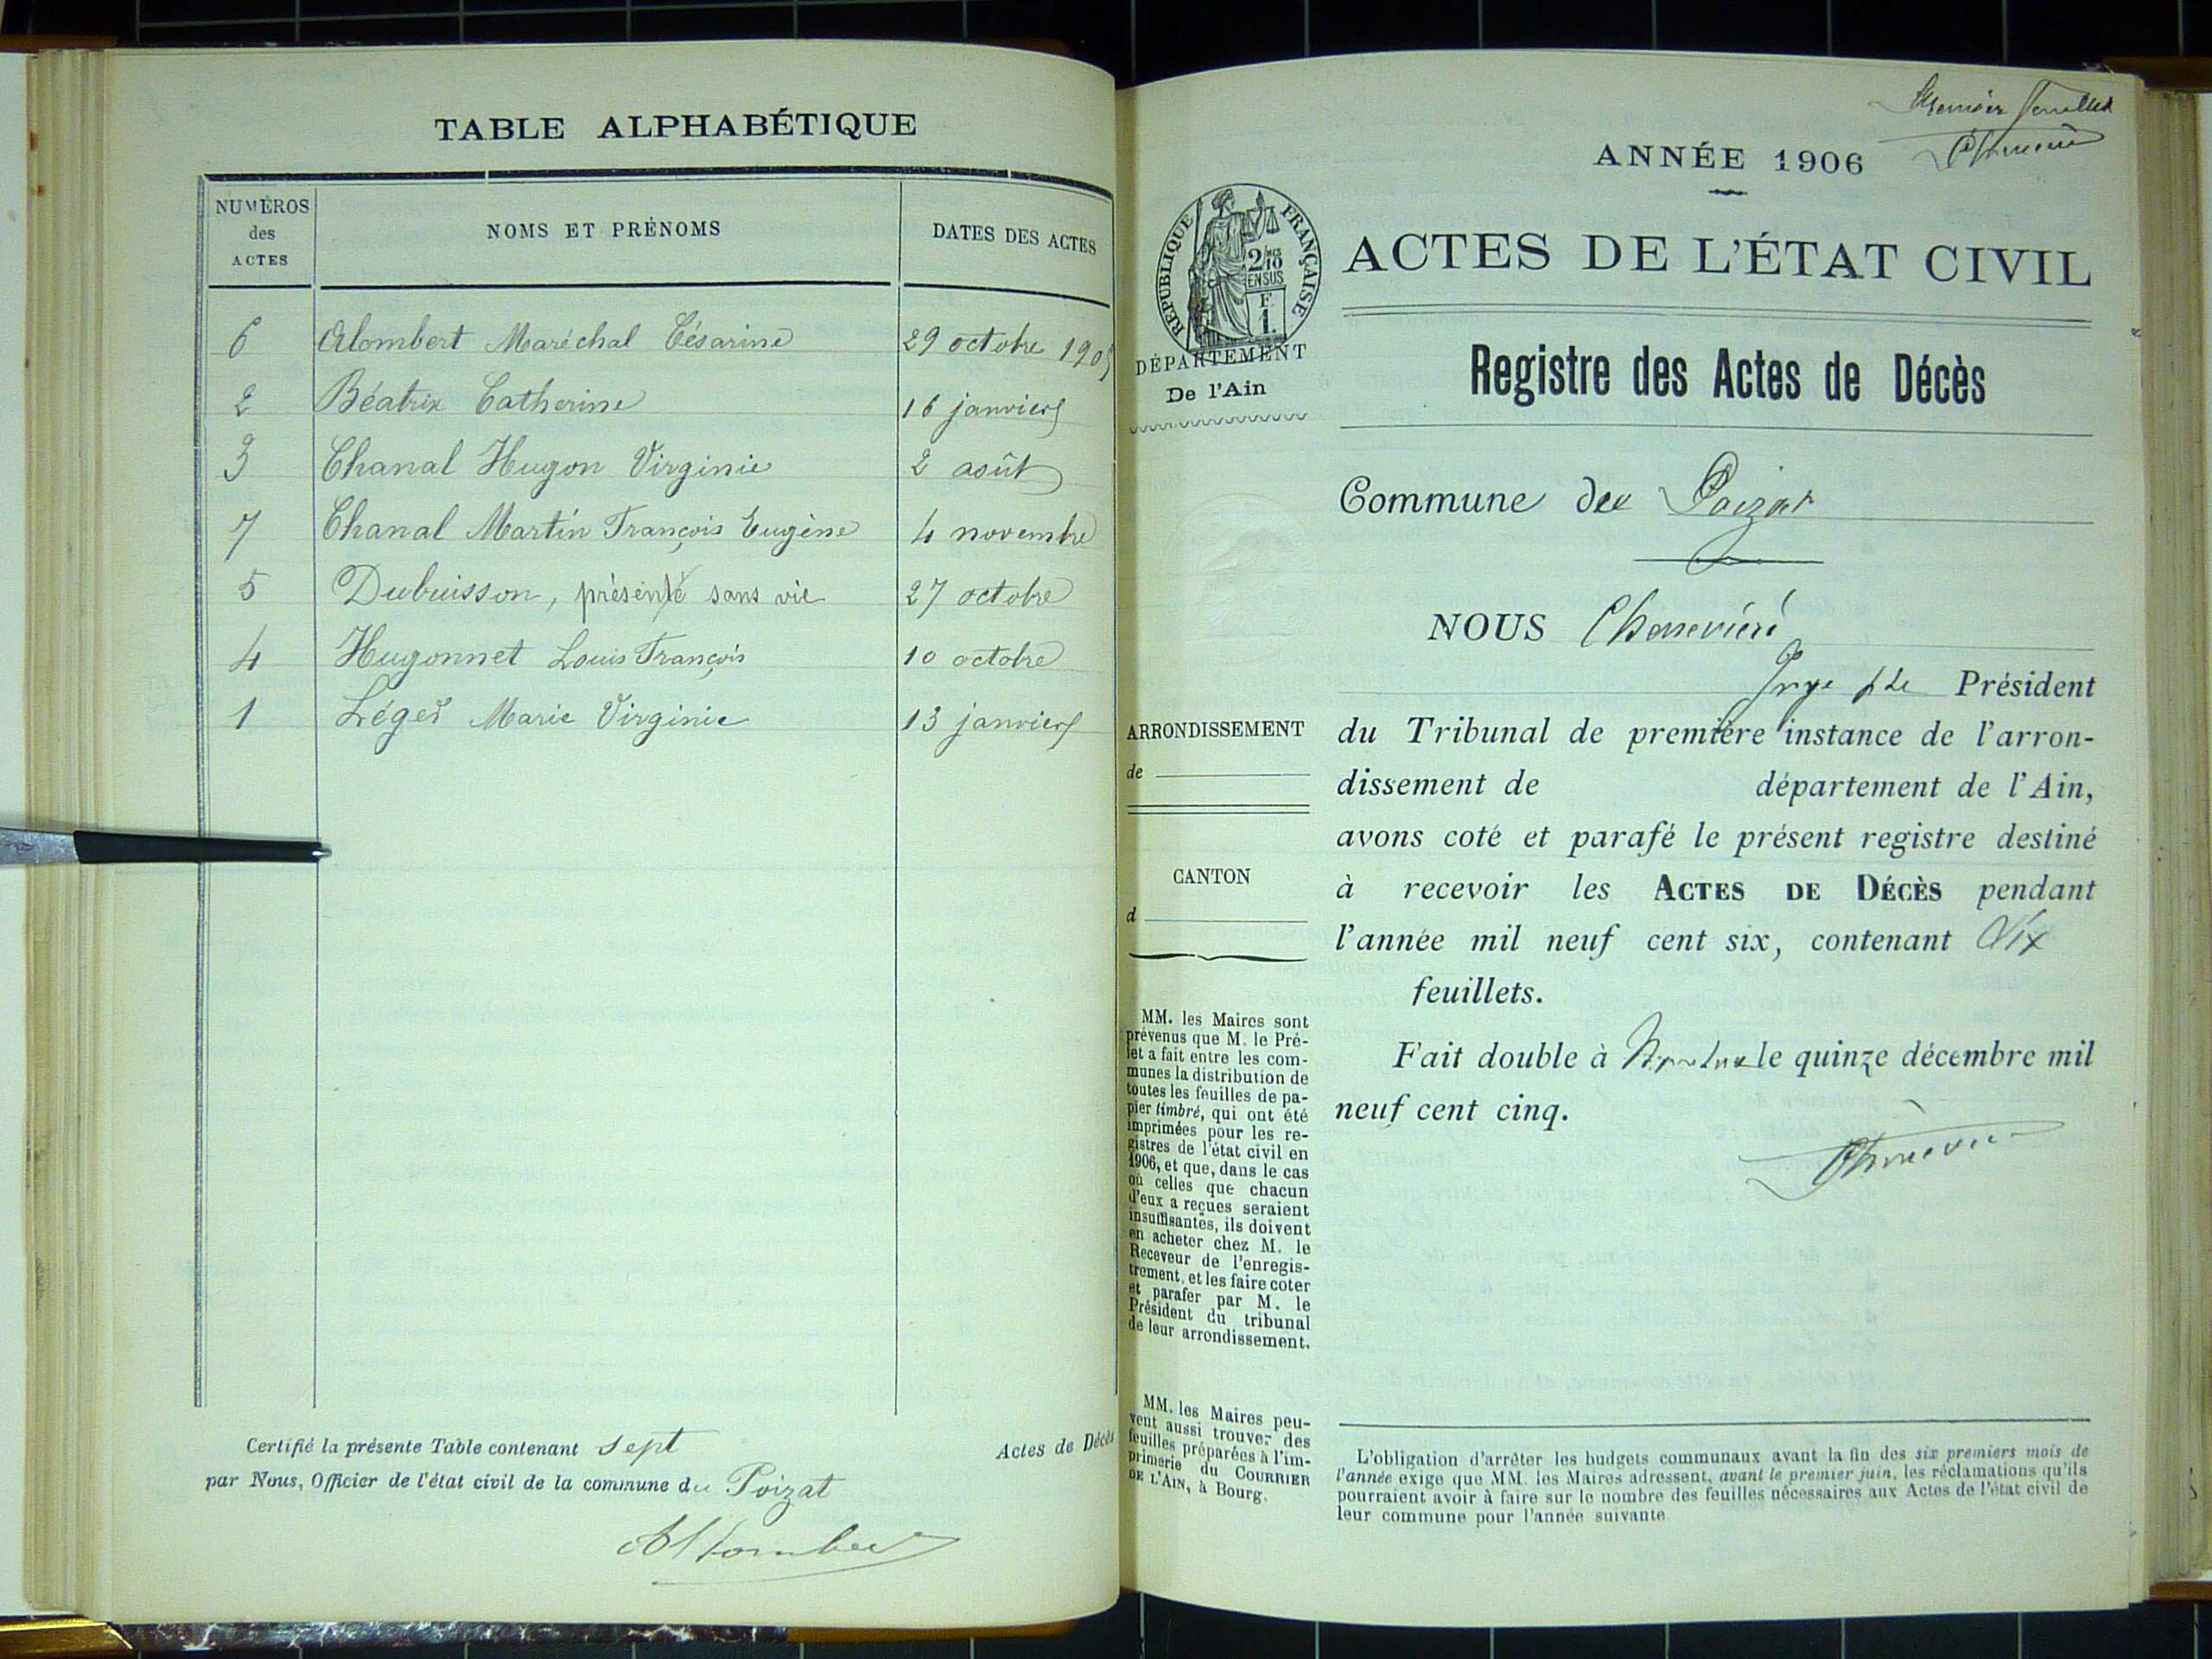 TABLE ALPHABÉTIQUE
NUMÉROS des ACTES NOMS ET PRÉNOMS DATES DES ACTES
6 Alombert Maréchal Césarine 29 octobre 1905
2 Béatrix Catherine 16 janvier
3 Chanal Hugon Virginie 2 août
7 Chanal Martin François Eugène 4 novembre
5 Dubuisson, présenté sans vie 27 octobre
4 Hugonnet Louis François 10 octobre
1 Léger Marie Virginie 13 janvier
Certifié la présente Table contenant sept Actes de Décès
par Nous, Officier de l'état civil de la commune du Poizat
Premier
ANNÉE 1906
RÉPUBLIQUE FRANÇAISE
2/10
EN SUS
F.
1.
ACTES DE L'ÉTAT CIVIL
DÉPARTEMENT
De l'Ain
Registre des Actes de Décès
Commune du Poizat
NOUS
Juge Président
du Tribunal de première instance de l'arron-
dissement de département de l'Ain,
avons coté et parafé le présent registre destiné
à recevoir les ACTES DE DÉCÈS pendant
l'année mil neuf cent six, contenant
feuillets.
Fait double à le quinze décembre mil
neuf cent cinq.
ARRONDISSEMENT
de
CANTON
d
MM. les Maires sont
prévenus que M. le Pré-
fet a fait entre les com-
munes la distribution de
toutes les feuilles de pa-
pier timbré, qui ont été
imprimées pour les re-
gistres de l'état civil en
1906, et que, dans le cas
où celles que chacun
d'eux a reçues seraient
insuffisantes, ils doivent
en acheter chez M. le
Receveur de l'enregis-
trement, et les faire coter
et parafer par M. le
Président du tribunal
de leur arrondissement.
MM. les Maires peu-
vent aussi trouver des
feuilles préparées à l'im-
primerie du COURRIER
DE L'AIN, à Bourg.
L'obligation d'arrêter les budgets communaux avant la fin des six premiers mois de
l'année exige que MM. les Maires adressent, avant le premier juin, les réclamations qu'ils
pourraient avoir à faire sur le nombre des feuilles nécessaires aux Actes de l'état civil de
leur commune pour l'année suivante